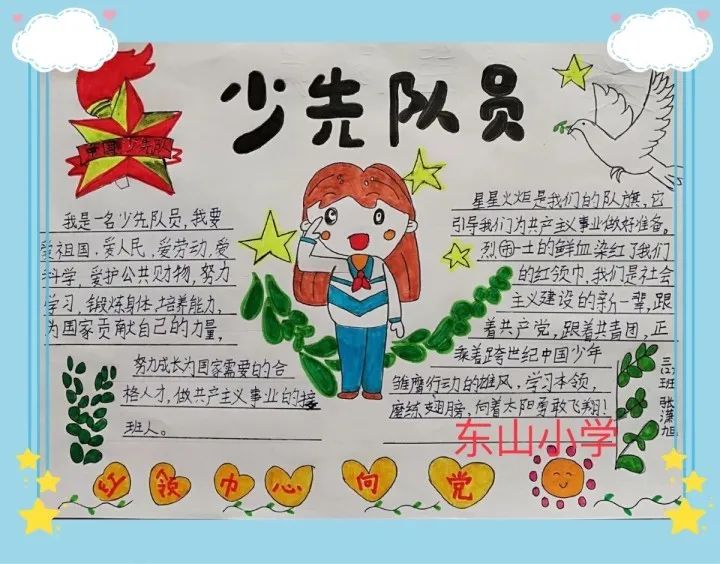 少先队员
中国少先队
我是一名少先队员,我要
爱祖国,爱人民,爱劳动,爱
科学,爱护公共财物,努力
学习,锻炼身体,培养能力,
为国家贡献自己的力量,
努力成长为国家需要的合
格人才,做共产主义事业的接
班人。
星星火炬是我们的队旗,它
引导我们为共产主义事业做好准备。
烈士的鲜血染红了我们
的红领巾,我们是社会
主义建设的新一辈,跟
着共产党,跟着共青团,正
乘着跨世纪中国少年
雏鹰行动的雄风,学习本领,
磨练翅膀,向着太阳勇敢飞翔!
三班 张潇旭
东山小学
红领巾心向党